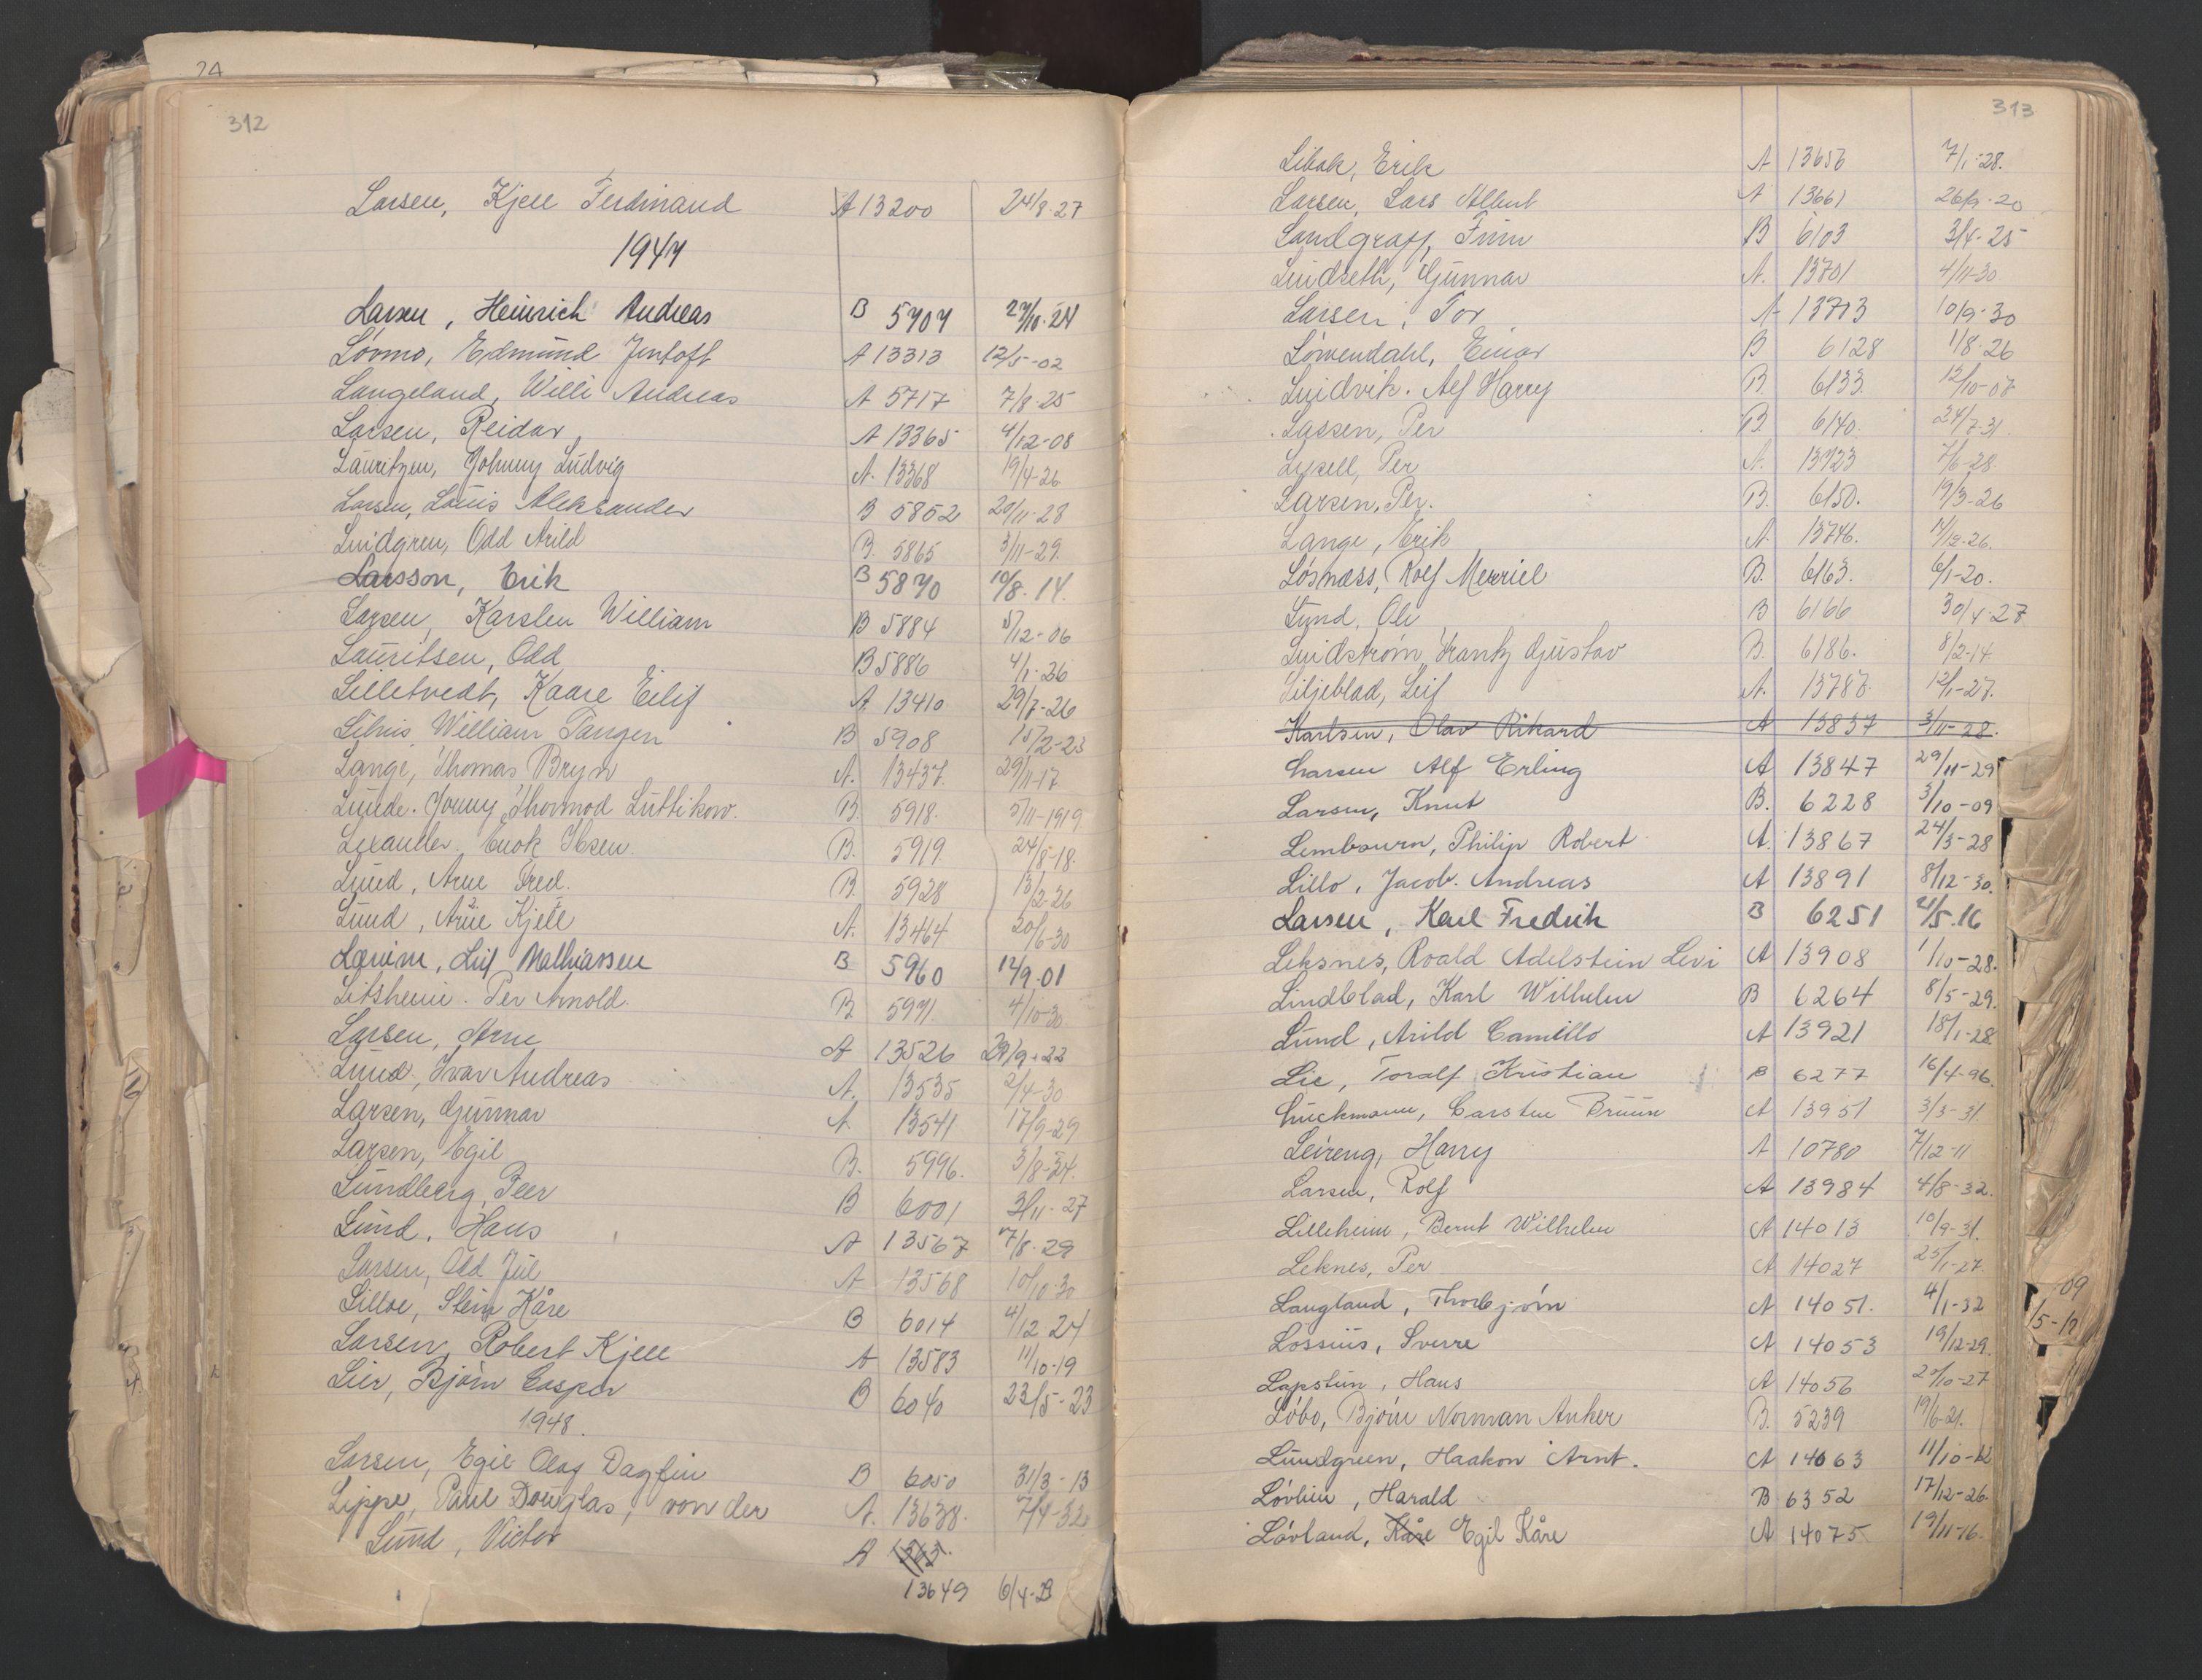 24
312
Larsen, Kjell Ferdinand A 13200 24/8-27
1947
Larsen, Heinrich Andreas B 5707 27/10-24
Lövmo, Edmund Jentoft A 13313 12/5-02
Langeland, Willi Andreas A 5717 7/8-25
Larsen, Reidar A 13365 4/12-08
Lauritzen, Johnny Ludvig A. 13368 19/4-26
Larsen, Louis Aleksander B 5852 20/11-28
Lindgren, Odd Arild B. 5865 3/11-29.
Larsson, Erik B 5870 10/8-14.
Larsen, Karsten William B 5884 5/12-06
Lauritsen, Odd B 5886 4/1-26
Lilletvedt, Kaare Eilif A 13410 29/7-26
William Tangen B 5908 15/2-23
Lange, Thomas Bryn A. 13437. 29/11-17
Lunde. Jonny Thormod Lüttikow. B. 5918. 5/11-1919
Lexander. Enok Ibsen. B. 5919. 24/8-18.
Lund, Arne Fred. B. 5928 13/2-26
Lund, Arne Kjell A. 13464 20/6-30
Leif Mathiassen B 5960 12/9-01
Litsheim. Per Arnold. B 5971. 4/10-30
Larsen, Arne A 13526 29/9-22
Lund, Ivar Andreas A. 13535 2/4-30
Larsen, Gunnar A. 13541 17/9-29
Larsen, Egil B. 5996. 3/8-24.
Lundberg, Peer B 6001 3/11-27
Lund, Hans A 13567 7/8-29
Larsen, Odd Jul A 13568 10/10-30
Lilloe, Stein Kåre B 6014 4/12-24
Larsen, Robert Kjell A 13583 11/10-19
Lier, Bjørn Casper B 6040 23/5-23
1948.
Larsen, Egil Olaf Dagfin B 6050 31/3-13
Lippe, Paul Douglas, von der A. 13638. 7/4-32
Lund, Victor A
13649 6/4-23
313
Libak, Erik A 13656 7/1-28.
Larsen, Lars Albert A 13661 26/9-20
Landgraff, Finn B 6103 3/4-25
Lindseth, Gunnar A. 13701 4/11-30
Larsen, Tor A 13713 10/9-30
Löwendahl, Einar B 6128 1/8-26
Lindvik. Alf Harry B. 6133. 12/10-07
Lassen, Per B. 6140. 24/7-31.
Lysell, Per A. 13723 7/6-28.
Larsen, Per. B. 6150. 19/3-26
Lange, Erik A. 13746. 14/12-26.
Lösnæss, Rolf Merriel B. 6163. 6/1-20.
Lund, Ole B 6166 30/4-27
Lindström, Frantz Gustav B. 6186. 8/2-14
Liljeblad, Leif A. 13787. 12/1-27.
Karlsen, Olav Rikard A 13837 3/11-28.
Larsen Alf Erling A 13847 29/11-29
Larsen, Knut B. 6228 3/10-09
Lembourn, Philip Robert A. 13867 24/3-28
Lillo, Jacob. Andreas A 13891 8/12-30.
Larsen, Karl Fredrik B 6251 21/5-16
Leksnes, Roald Adelstein Levi A 13908 1/10-28.
Lindblad, Karl Wilhelm B 6264 8/5-29.
Lund, Arild Camillo A 13921 18/1-28
Lie, Toralf Kristian B 6277 16/4-96.
Lückmann, Carsten Bruun A 13951 3/3-31.
Leireng, Harry A 10780 7/12-11
Larsen, Rolf A 13984 4/8-32.
Lilleheim, Bernt Wilhelm A 14013 10/9-31.
Leknes, Per A 14027 25/1-27.
Langland, Thorbjørn A 14051. 4/1-32
Lossius, Sverre A 14053 19/12-29.
Lapstun, Hans A 14056 20/10-27
Löbo, Bjørn Norman Anker B. 5239 19/6-21.
Lundgreen, Haakon Arnt. A 14063 11/10-12
Lövlien, Harald B 6352 17/12-26.
Lövland, Kåre Egil Kåre A 14075 19/11-16.
-09
/5-17